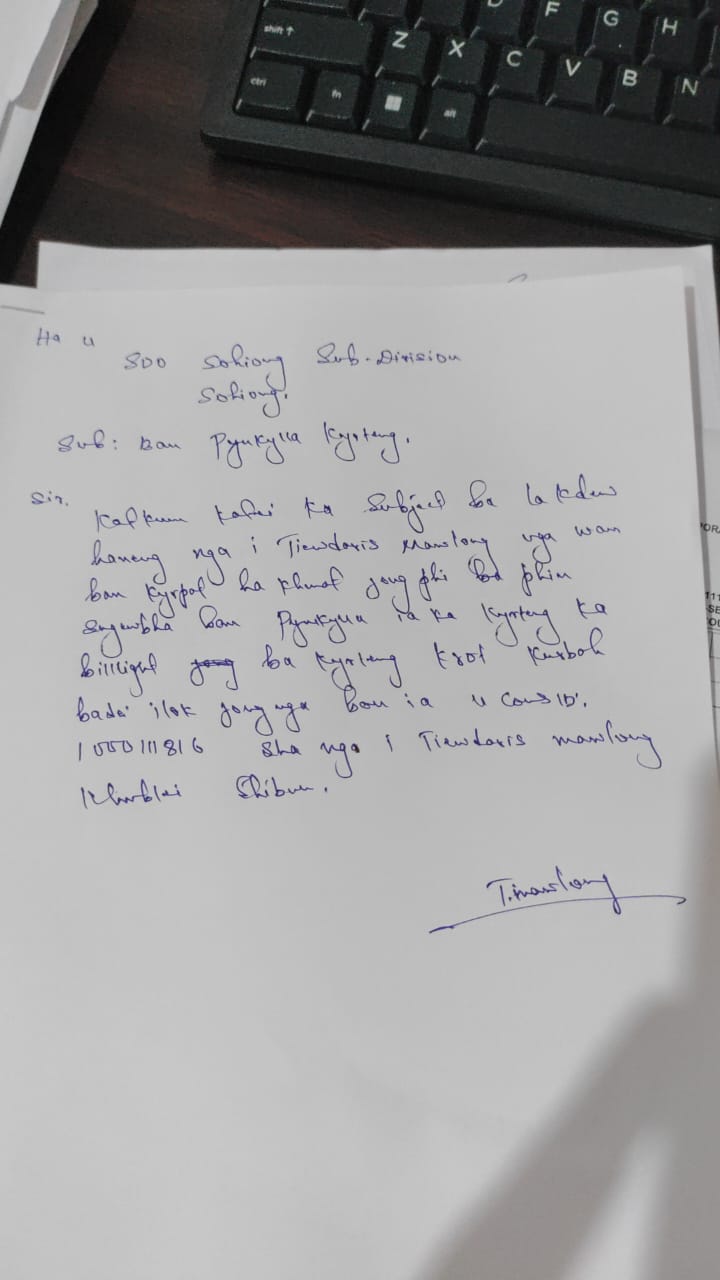 F G H
shift ↑ Z X C V B N
ctrl fn alt
Ha u
SDO Sohiong Sub-Division
Sohiong.
Sub: Ban Pynkylla Kyrteng.
Sir,
Katkum katei ka Subject ba la kdew
haneng nga i Tiewdoris Mawlong nga wan
ban kyrpad ha khmat jong phi ba phin
sngewbha ban Pynkylla ia ka Kyrteng ka
billlight ba kyrteng Krot Kurbah
badei ilok jong nga bon ia u Cons ID.
1000111816 Sha nga i Tiewdoris mawlong
Khublei Shibun.
T.mawlong